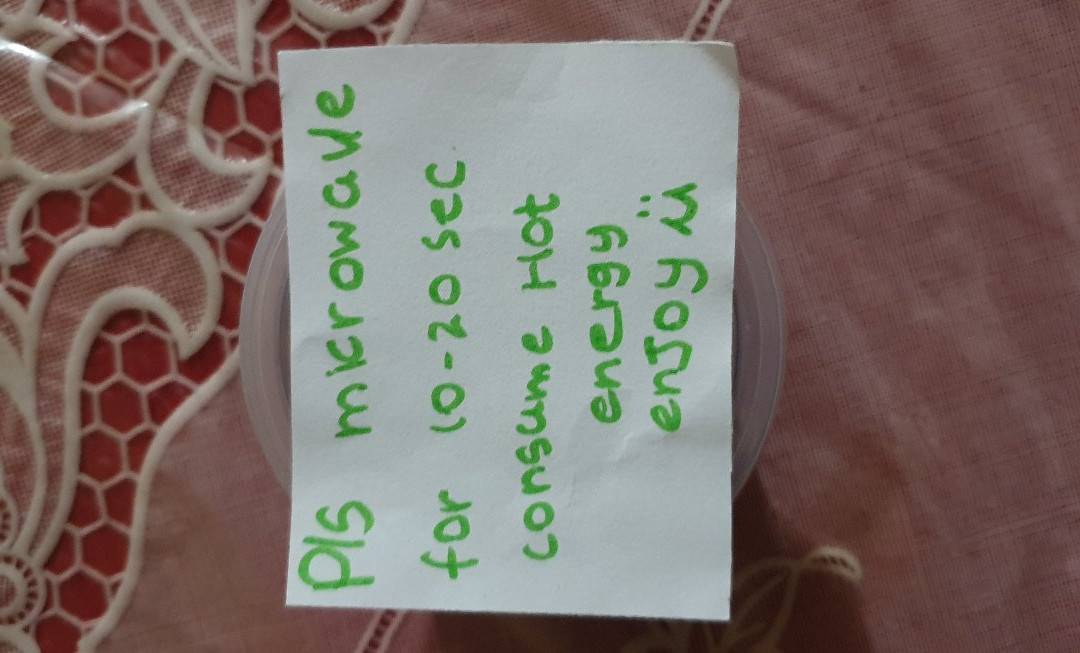 Pls microwave
for 10-20 sec.
consume Hot
energy
enJoy ü